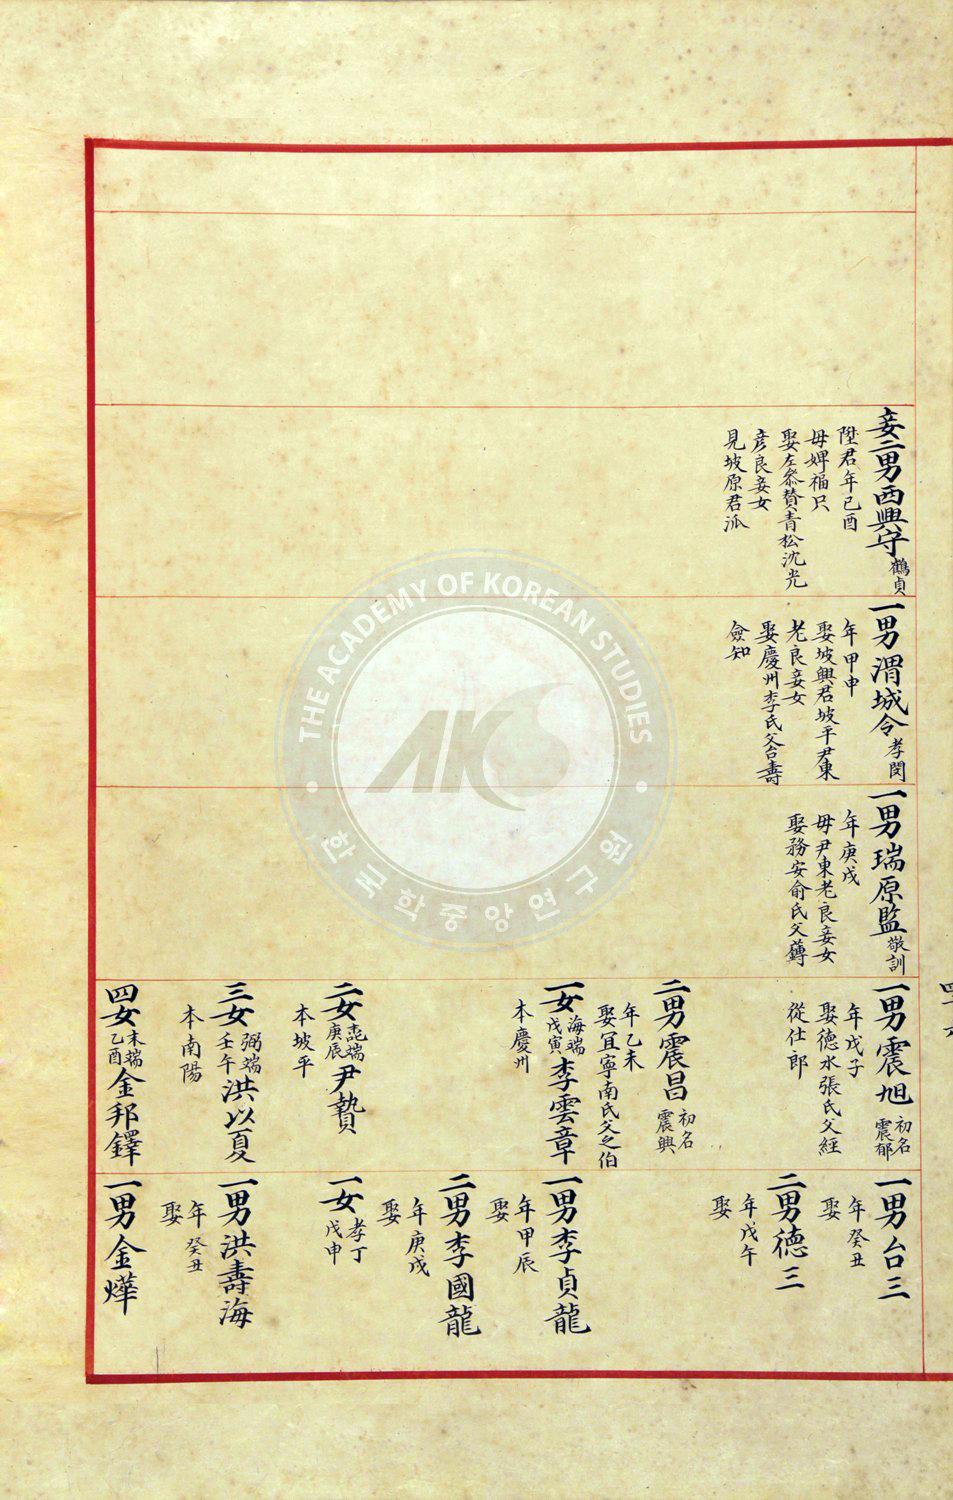 妾二男西興守鶴貞
陞君年己酉
母婢福只
娶左參贊青松沈光
彦良妾女
見坡原君派
一男渭城令孝閔
年甲申
娶坡興君坡平尹東
老良妾女
娶慶州李氏父台壽
僉知
一男瑞原監敬訓
年庚戌
母尹東老良妾女
娶務安俞氏父
一男震旭初名震郁
年戊子
娶德水張氏父經
從仕郎
二男震昌初名震興
年乙未
娶宜寧南氏父之伯
一女海端戊寅李雲章
本慶州
二女端庚辰尹贄
本坡平
三女弼端壬午洪以夏
本南陽
四女末端乙酉金邦鐸
一男台三
年癸丑
娶
二男德三
年戊午
娶
一男李貞龍
年甲辰
娶
二男李國龍
年庚戌
娶
一女孝丁戊申
一男洪壽海
年癸丑
娶
一男金燁
THE ACADEMY OF KOREAN STUDIES
AKS
한국학중앙연구원